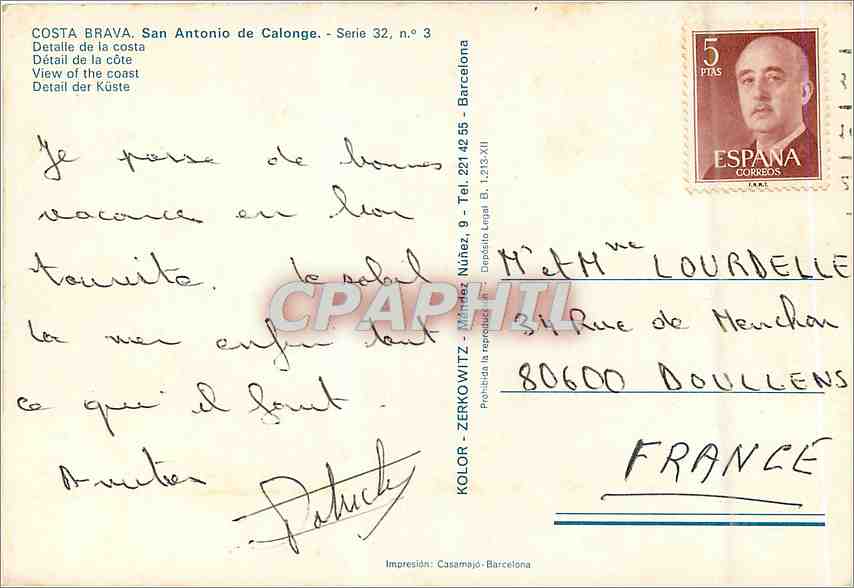 COSTA BRAVA. San Antonio de Calonge. - Serie 32, n.º 3
Detalle de la costa
Détail de la côte
View of the coast
Detail der Küste
Je passe de bonnes
vacances en bon
touriste. Le soleil
la mer enfin tout
ce qui il faut.
Amitiés
Patrick
KOLOR - ZERKOWITZ - Méndez Núñez, 9 - Tel. 221 42 55 - Barcelona
Prohibida la reproducción - Depósito Legal B. 1.213-XII
5
PTAS
ESPAÑA
CORREOS
F.N.M.T.
Mr et Mme LOURDELLE
34 Rue de Menchon
80600 DOULLENS
FRANCE
Impresión: Casamajó-Barcelona
CPAPHIL.com